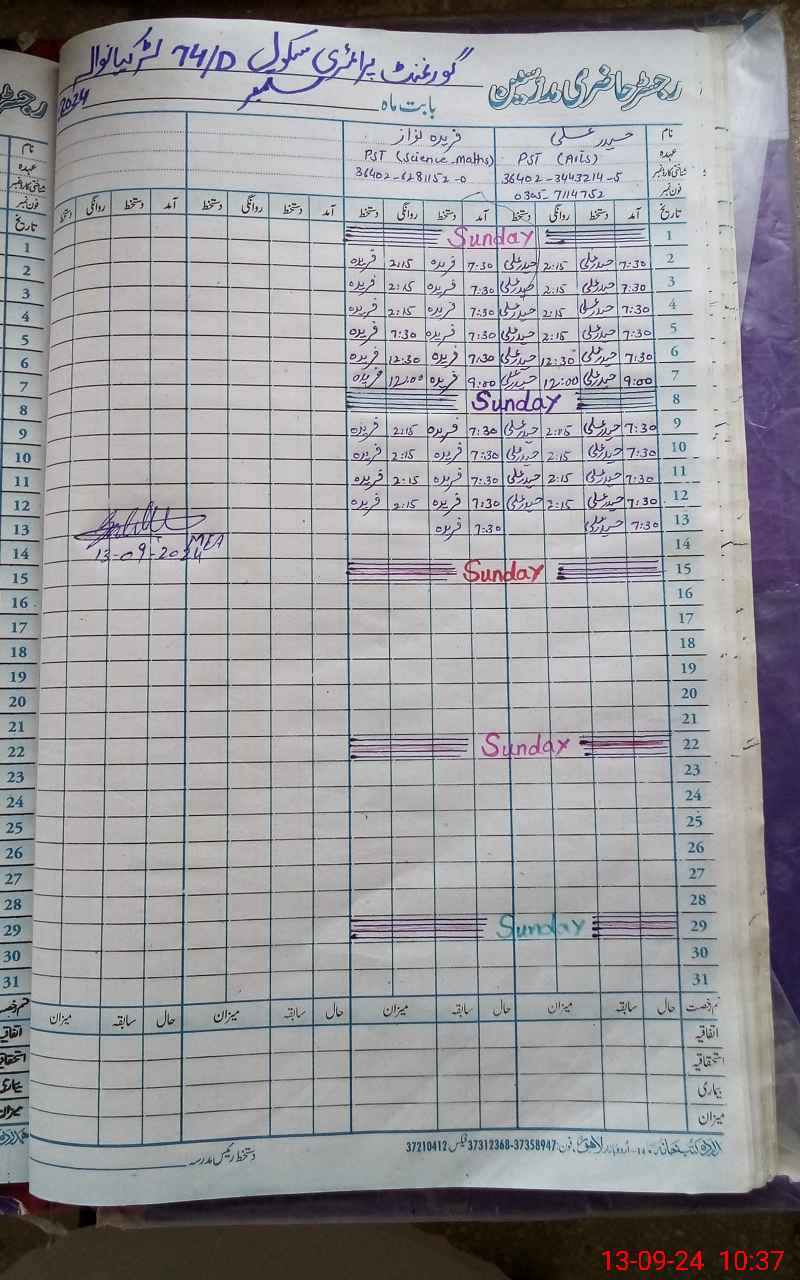 گورنمنٹ پرائمری سکول 74/D لڑکیانوالہ
رجسٹر حاضری مدرسین
بابت ماہ ستمبر 2024
نام حیدر علی فریدہ نواز
عہدہ PST (Arts) PST (Science Maths)
شناختی کارڈ نمبر 36402-3443214-5 36402-6281152-0
فون نمبر 0345-7114752
تاریخ آمد دستخط روانگی دستخط آمد دستخط روانگی دستخط آمد دستخط روانگی دستخط آمد دستخط روانگی دستخط
1 Sunday
2 7:30 حیدر علی 2:15 حیدر علی 7:30 فریدہ 2:15 فریدہ
3 7:30 حیدر علی 2:15 حیدر علی 7:30 فریدہ 2:15 فریدہ
4 7:30 حیدر علی 2:15 حیدر علی 7:30 فریدہ 2:15 فریدہ
5 7:30 حیدر علی 2:15 حیدر علی 7:30 فریدہ 7:30 فریدہ
6 7:30 حیدر علی 12:30 حیدر علی 7:30 فریدہ 12:30 فریدہ
7 9:00 حیدر علی 12:00 حیدر علی 9:00 فریدہ 12:00 فریدہ
8 Sunday
9 7:30 حیدر علی 2:15 حیدر علی 7:30 فریدہ 2:15 فریدہ
10 7:30 حیدر علی 2:15 حیدر علی 7:30 فریدہ 2:15 فریدہ
11 7:30 حیدر علی 2:15 حیدر علی 7:30 فریدہ 2:15 فریدہ
12 7:30 حیدر علی 2:15 حیدر علی 7:30 فریدہ 2:15 فریدہ
13 7:30 حیدر علی 7:30 فریدہ
MEA
13-09-2024
14
15 Sunday
16
17
18
19
20
21
22 Sunday
23
24
25
26
27
28
29 Sunday
30
31
قسم رخصت حال سابقہ میزان حال سابقہ میزان حال سابقہ میزان حال سابقہ میزان
اتفاقیہ
استحقاقیہ
بیماری
میزان
اردو بازار لاہور، فون: 37358947-37312368 فیکس 37210412
دستخط رئیس مدرسہ
رجسٹر
نام
عہدہ
شناختی کارڈ نمبر
فون نمبر
تاریخ
1
2
3
4
5
6
7
8
9
10
11
12
13
14
15
16
17
18
19
20
21
22
23
24
25
26
27
28
29
30
31
قسم رخصت
اتفاقیہ
استحقاقیہ
بیماری
میزان
13-09-24 10:37